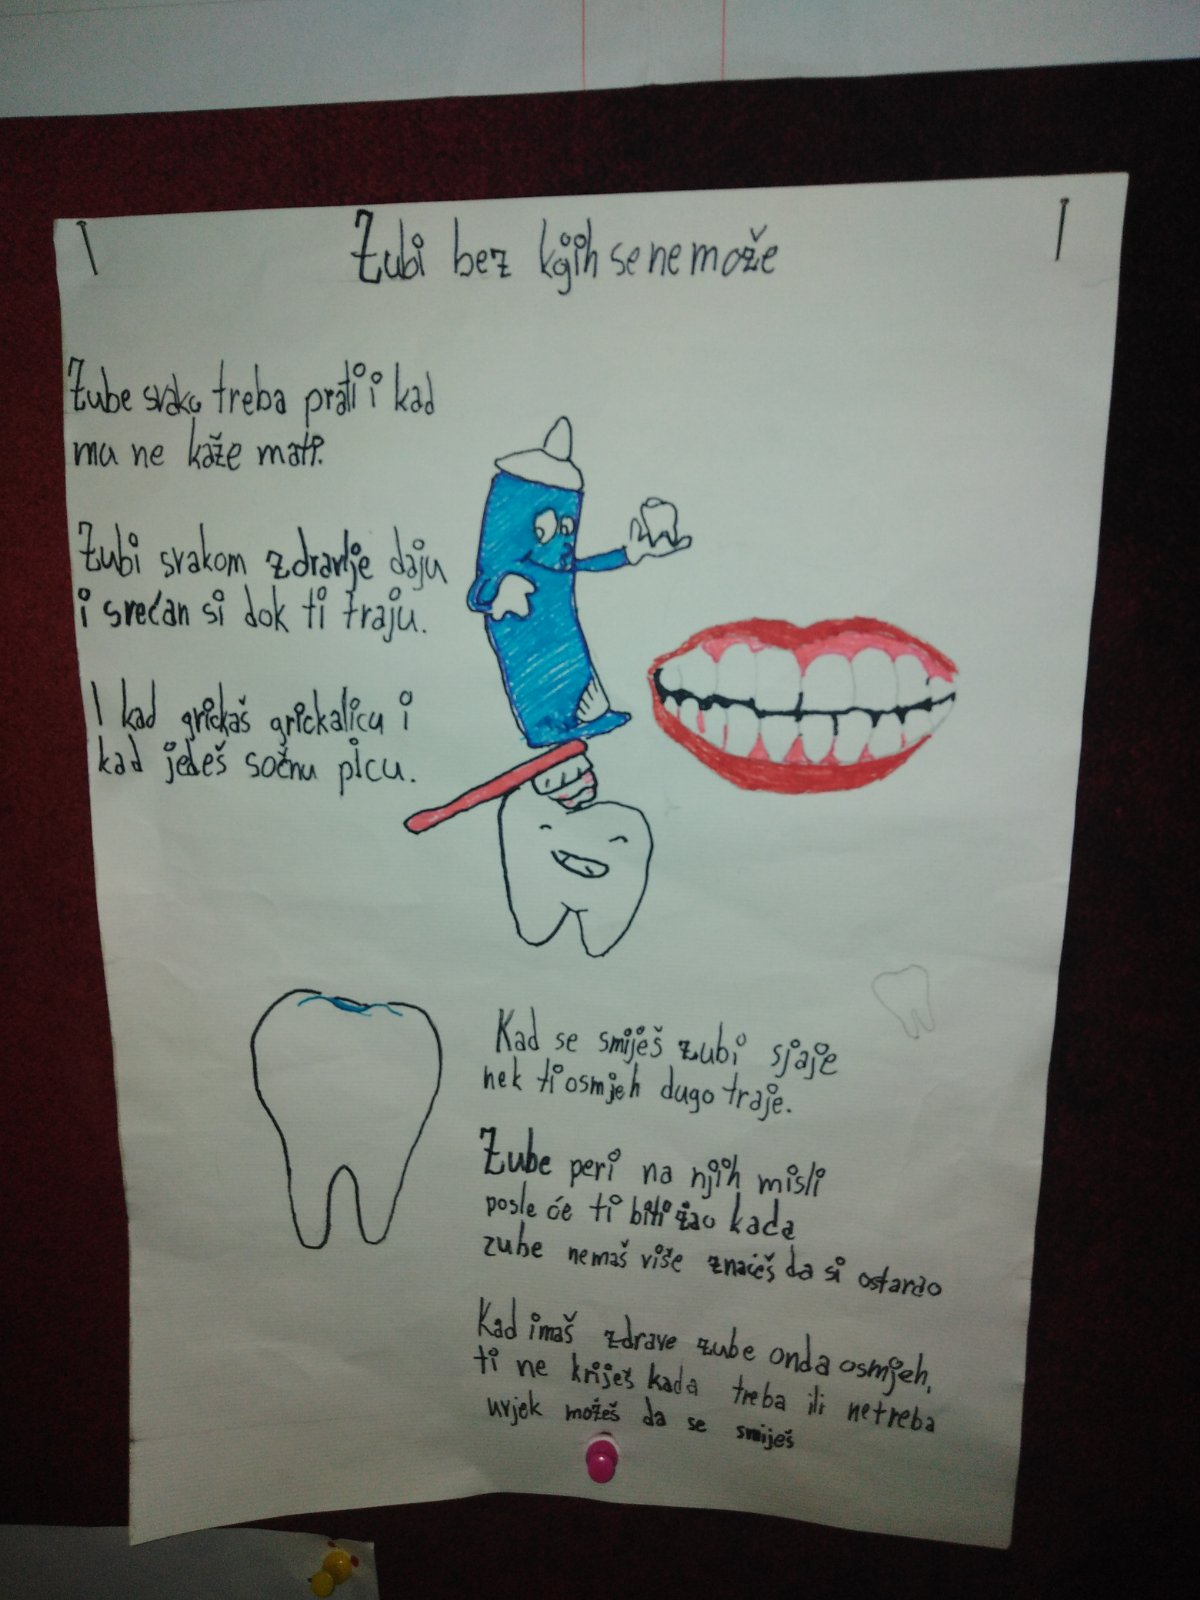 Zubi bez kojih se ne može
Zube svako treba prati i kad
mu ne kaže mati.
Zubi svakom zdravlje daju
i srećan si dok ti traju.
I kad grickaš grickalicu i
kad jedeš sočnu picu.
Kad se smiješ zubi sjaje
nek ti osmjeh dugo traje.
Zube peri na njih misli
posle će ti biti žao kada
zube nemaš više znaćeš da si ostarao
Kad imaš zdrave zube onda osmjeh,
ti ne kriješ kada treba ili netreba
uvjek možeš da se smiješ